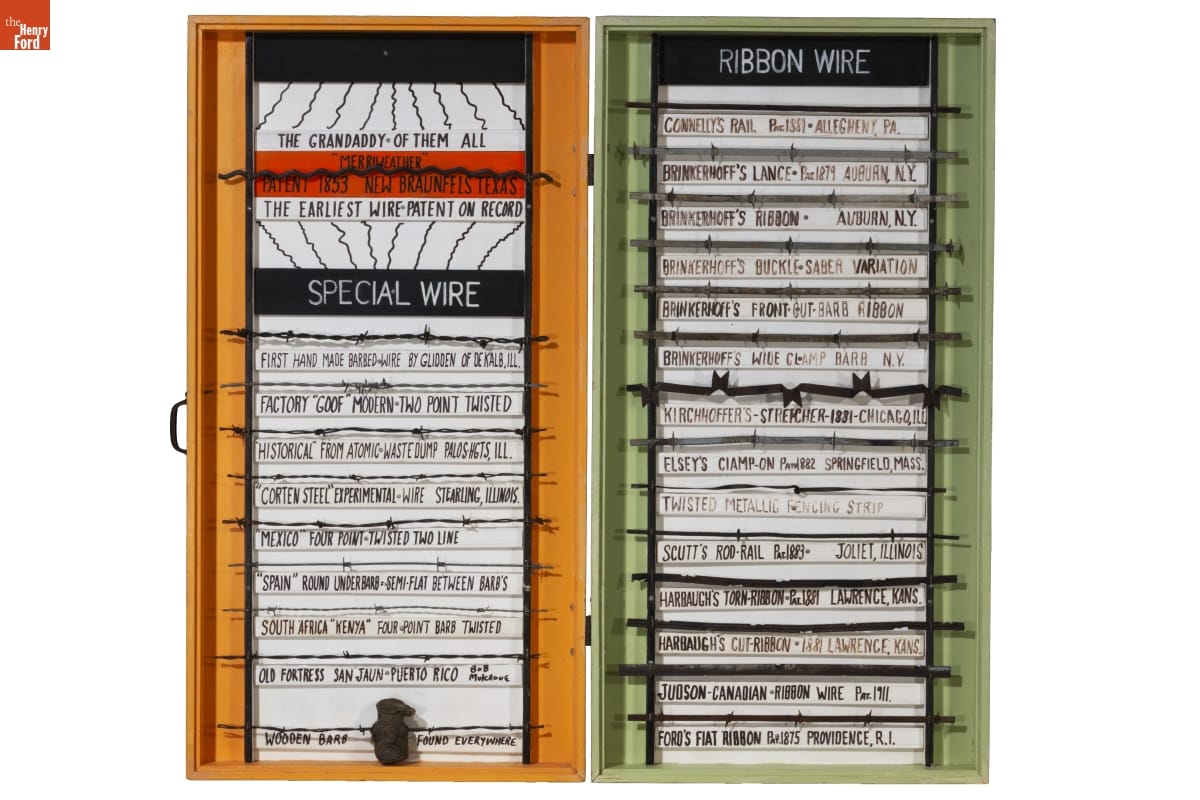 the
Henry
Ford
THE GRANDADDY·OF THEM ALL
"MERRIWEATHER"
PATENT 1853 NEW BRAUNFELS TEXAS
THE EARLIEST WIRE·PATENT ON RECORD
SPECIAL WIRE
FIRST HAND MADE BARBED·WIRE BY GLIDDEN OF DEKALB, ILL.
FACTORY "GOOF" MODERN·TWO POINT TWISTED
"HISTORICAL" FROM ATOMIC·WASTE DUMP PALOS·HGTS, ILL.
"CORTEN STEEL" EXPERIMENTAL·WIRE STEARLING, ILLINOIS.
"MEXICO" FOUR POINT·TWISTED TWO LINE
"SPAIN" ROUND UNDERBARB·SEMI-FLAT BETWEEN BARB'S
SOUTH AFRICA "KENYA" FOUR·POINT BARB TWISTED
OLD FORTRESS SAN JAUN·PUERTO RICO BOB MUSGROVE
WOODEN BARB FOUND EVERYWHERE
RIBBON WIRE
CONNELLY'S RAIL PAT. 1881·ALLEGHENY, PA.
BRINKERHOFF'S LANCE·PAT. 1879 AUBURN, N.Y.
BRINKERHOFF'S RIBBON· AUBURN, N.Y.
BRINKERHOFF'S BUCKLE·SABER VARIATION
BRINKERHOFF'S FRONT·CUT·BARB RIBBON
BRINKERHOFF'S WIDE CLAMP BARB N.Y.
KIRCHHOFFER'S-STRETCHER-1881-CHICAGO, ILL
ELSEY'S CLAMP-ON PAT. 1882 SPRINGFIELD, MASS.
TWISTED METALLIC FENCING STRIP
SCUTT'S ROD-RAIL PAT. 1883· JOLIET, ILLINOIS
HARBAUGH'S TORN-RIBBON·PAT. 1881 LAWRENCE, KANS.
HARBAUGH'S CUT-RIBBON·1881 LAWRENCE, KANS.
JUDSON-CANADIAN·RIBBON WIRE PAT. 1911.
FORD'S FLAT RIBBON PAT. 1875 PROVIDENCE, R.I.